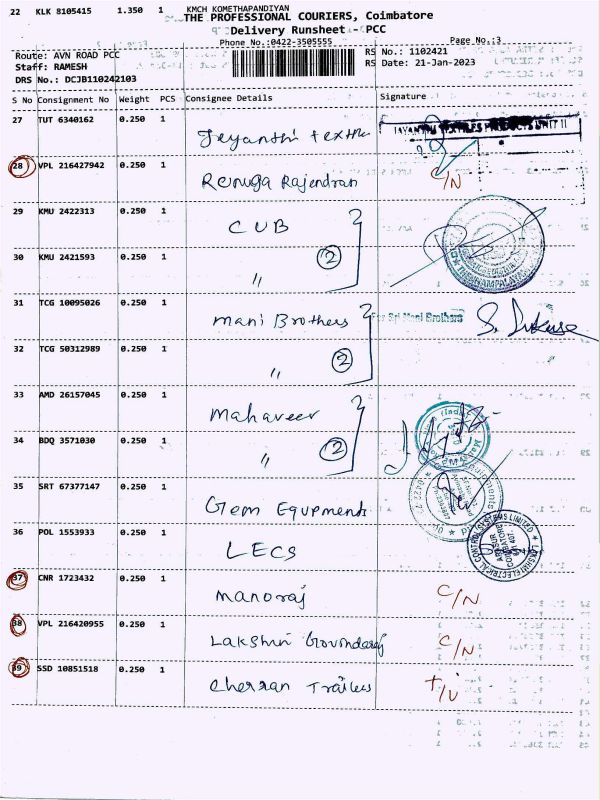 22 KLK 8105415 1.350 1 KMCH KOMETHAPANDIYAN
THE PROFESSIONAL COURIERS, Coimbatore
Delivery Runsheet - PCC
Phone No.:0422-3505555 Page No.:3
Route: AVN ROAD PCC RS No.: 1102421
Staff: RAMESH RS Date: 21-Jan-2023
DRS No.: DCJB110242103
S No Consignment No Weight PCS Consignee Details Signature
27 TUT 6340162 0.250 1 Jeyanthi Textile
JAYANTHI TEXTILES PRODUCTS UNIT II
28 VPL 216427942 0.250 1 Renuga Rajendran C/N
29 KMU 2422313 0.250 1 CUB
30 KMU 2421593 0.250 1 " 2
31 TCG 10095026 0.250 1 Mani Brothers For Sri Mani Brothers
32 TCG 50312989 0.250 1 " 2
33 AMD 26157045 0.250 1 Mahaveer
34 BDQ 3571030 0.250 1 " 2
35 SRT 67377147 0.250 1 Gem Equpments
36 POL 1553933 0.250 1 LECS
LAKSHMI ELECTRICAL CONTROL SYSTEMS LIMITED
37 CNR 1723432 0.250 1 Manoraj C/N
38 VPL 216420955 0.250 1 Lakshmi Govindaraj C/N
39 SSD 10851518 0.250 1 Cherran Trailers